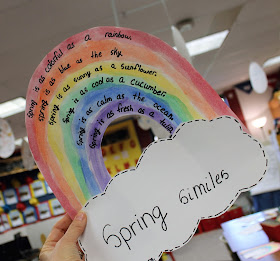 Spring is as colorful as a rainbow.
Spring is as blue as the sky.
Spring is as sunny as a sunflower.
Spring is as cool as a cucumber.
Spring is as calm as the ocean.
Spring is as fresh as a
Spring Similes